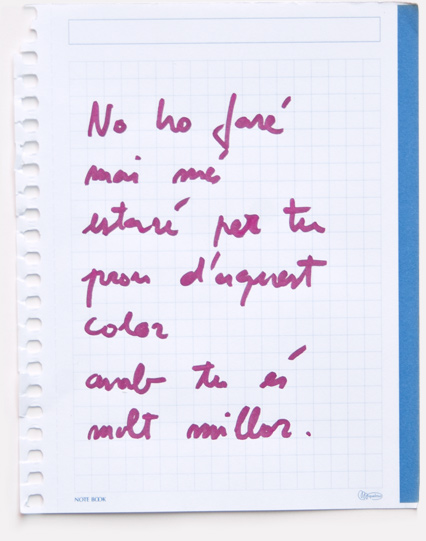 No ho faré
mai més
estaré per tu
prou d'aquest
color
amb tu és
molt millor.
NOTE BOOK